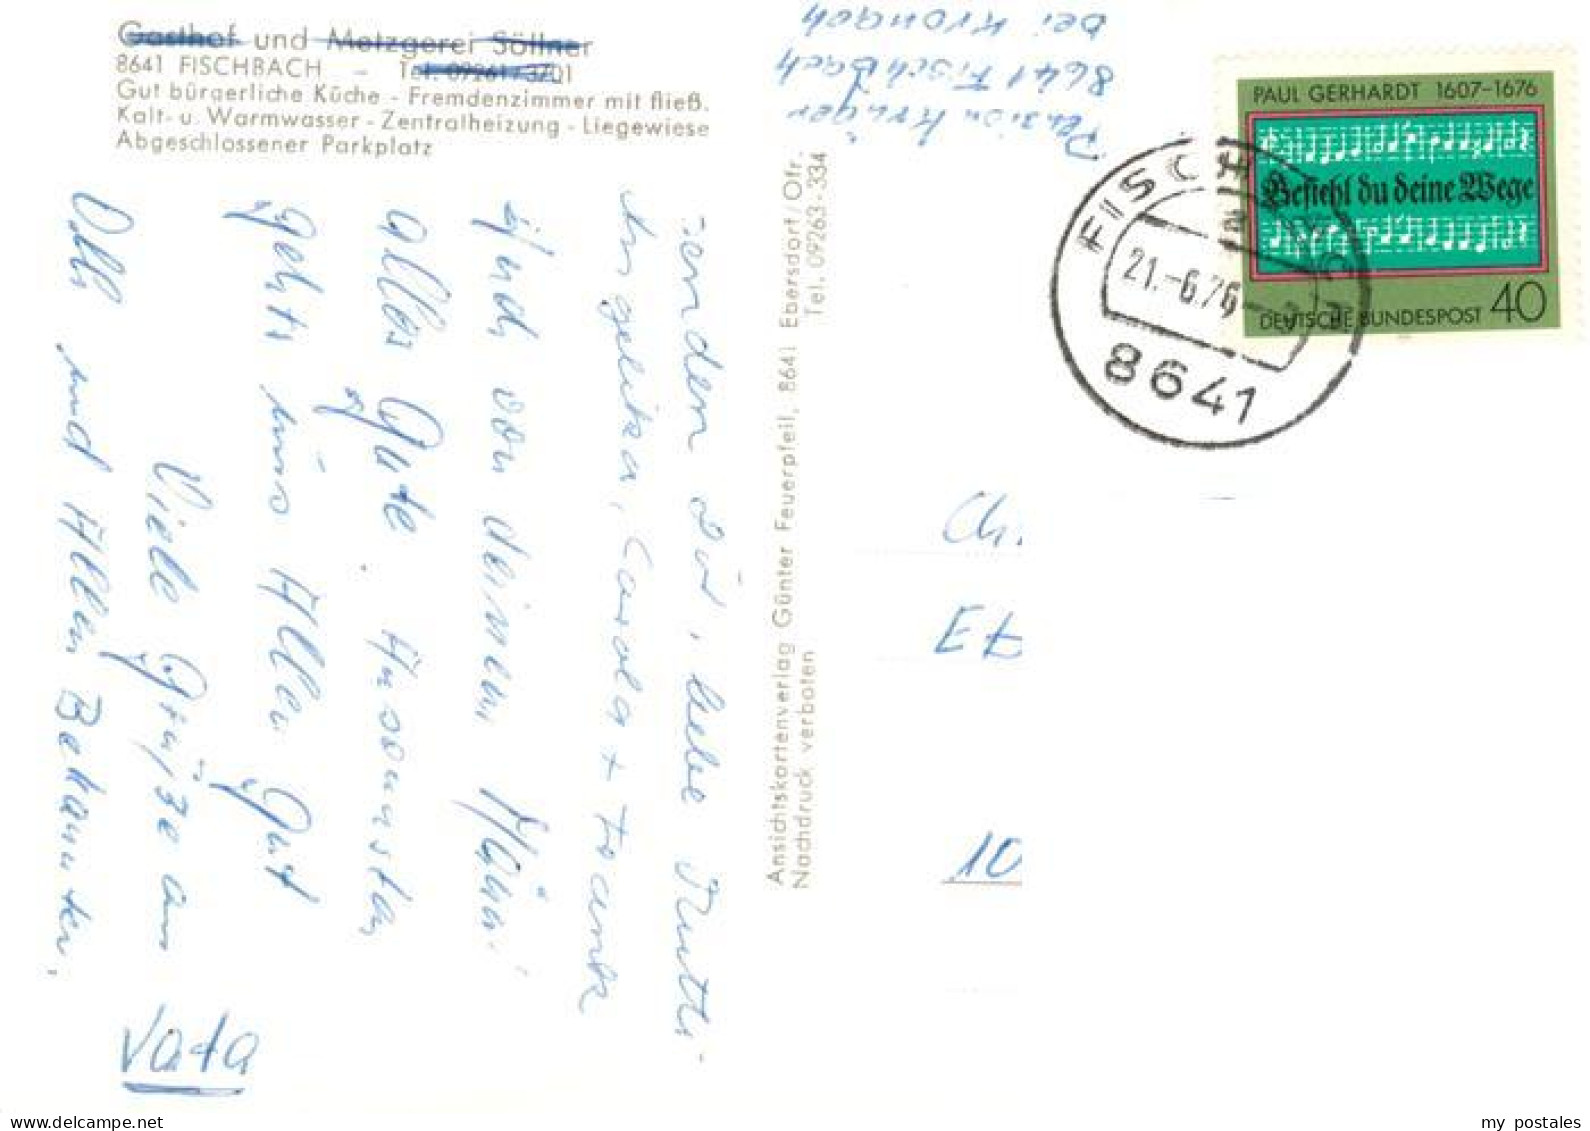 Gasthof und Metzgerei Söllner
8641 FISCHBACH – Tel. 09261/3701
Gut bürgerliche Küche - Fremdenzimmer mit fließ.
Kalt- u. Warmwasser - Zentralheizung - Liegewiese
Abgeschlossener Parkplatz
Pension Krüger
8641 Fischbach
bei Kronach
PAUL GERHARDT 1607-1676
Befiehl du deine Wege
DEUTSCHE BUNDESPOST 40
FISCHBACH
21.-6.76
8641
senden Dir, liebe Mutti
Angelika, Carola + Frank
Und von deinem
alles Gute. Ansonsten
gehts uns Allen Gut
Viele Grüße an
Olli und Allen Bekannten.
Vata
Ansichtskartenverlag Günter Feuerpfeil, 8641 Ebersdorf/Ofr.
Nachdruck verboten Tel. 09263-334
Ch.
10
my postales